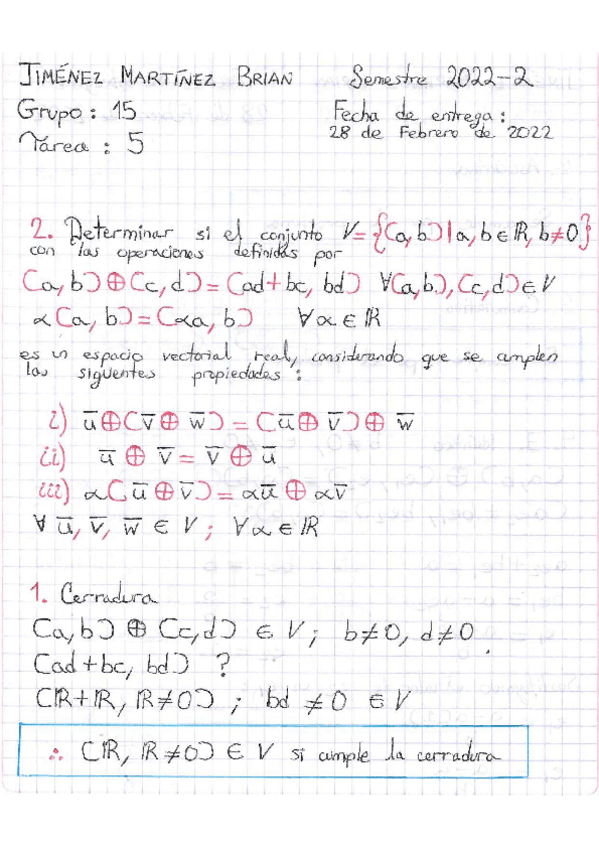 JIMÉNEZ MARTÍNEZ BRIAN Semestre 2022-2
Grupo: 15 Fecha de entrega:
Tarea: 5 28 de Febrero de 2022
2. Determinar si el conjunto V={(a,b)|a,b∈ℝ, b≠0}
con las operaciones definidas por
(a,b)⊕(c,d)=(ad+bc, bd) ∀(a,b),(c,d)∈V
α(a,b)=(αa,b) ∀α∈ℝ
es un espacio vectorial real, considerando que se cumplen
las siguientes propiedades:
i) u̅⊕(v̅⊕w̅)=(u̅⊕v̅)⊕w̅
ii) u̅⊕v̅=v̅⊕u̅
iii) α(u̅⊕v̅)=αu̅⊕αv̅
∀u̅,v̅,w̅∈V; ∀α∈ℝ
1. Cerradura
(a,b)⊕(c,d)∈V; b≠0, d≠0.
(ad+bc, bd) ?
(ℝ+ℝ, ℝ≠0); bd≠0 ∈V
∴ (ℝ, ℝ≠0)∈V si cumple la cerradura